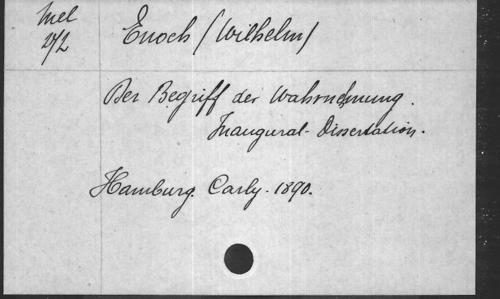 Mel
2/2
Enoch (Wilhelm)
Der Begriff der Wahrnehmung.
Inaugural-Dissertation.
Hamburg. Carly. 1890.